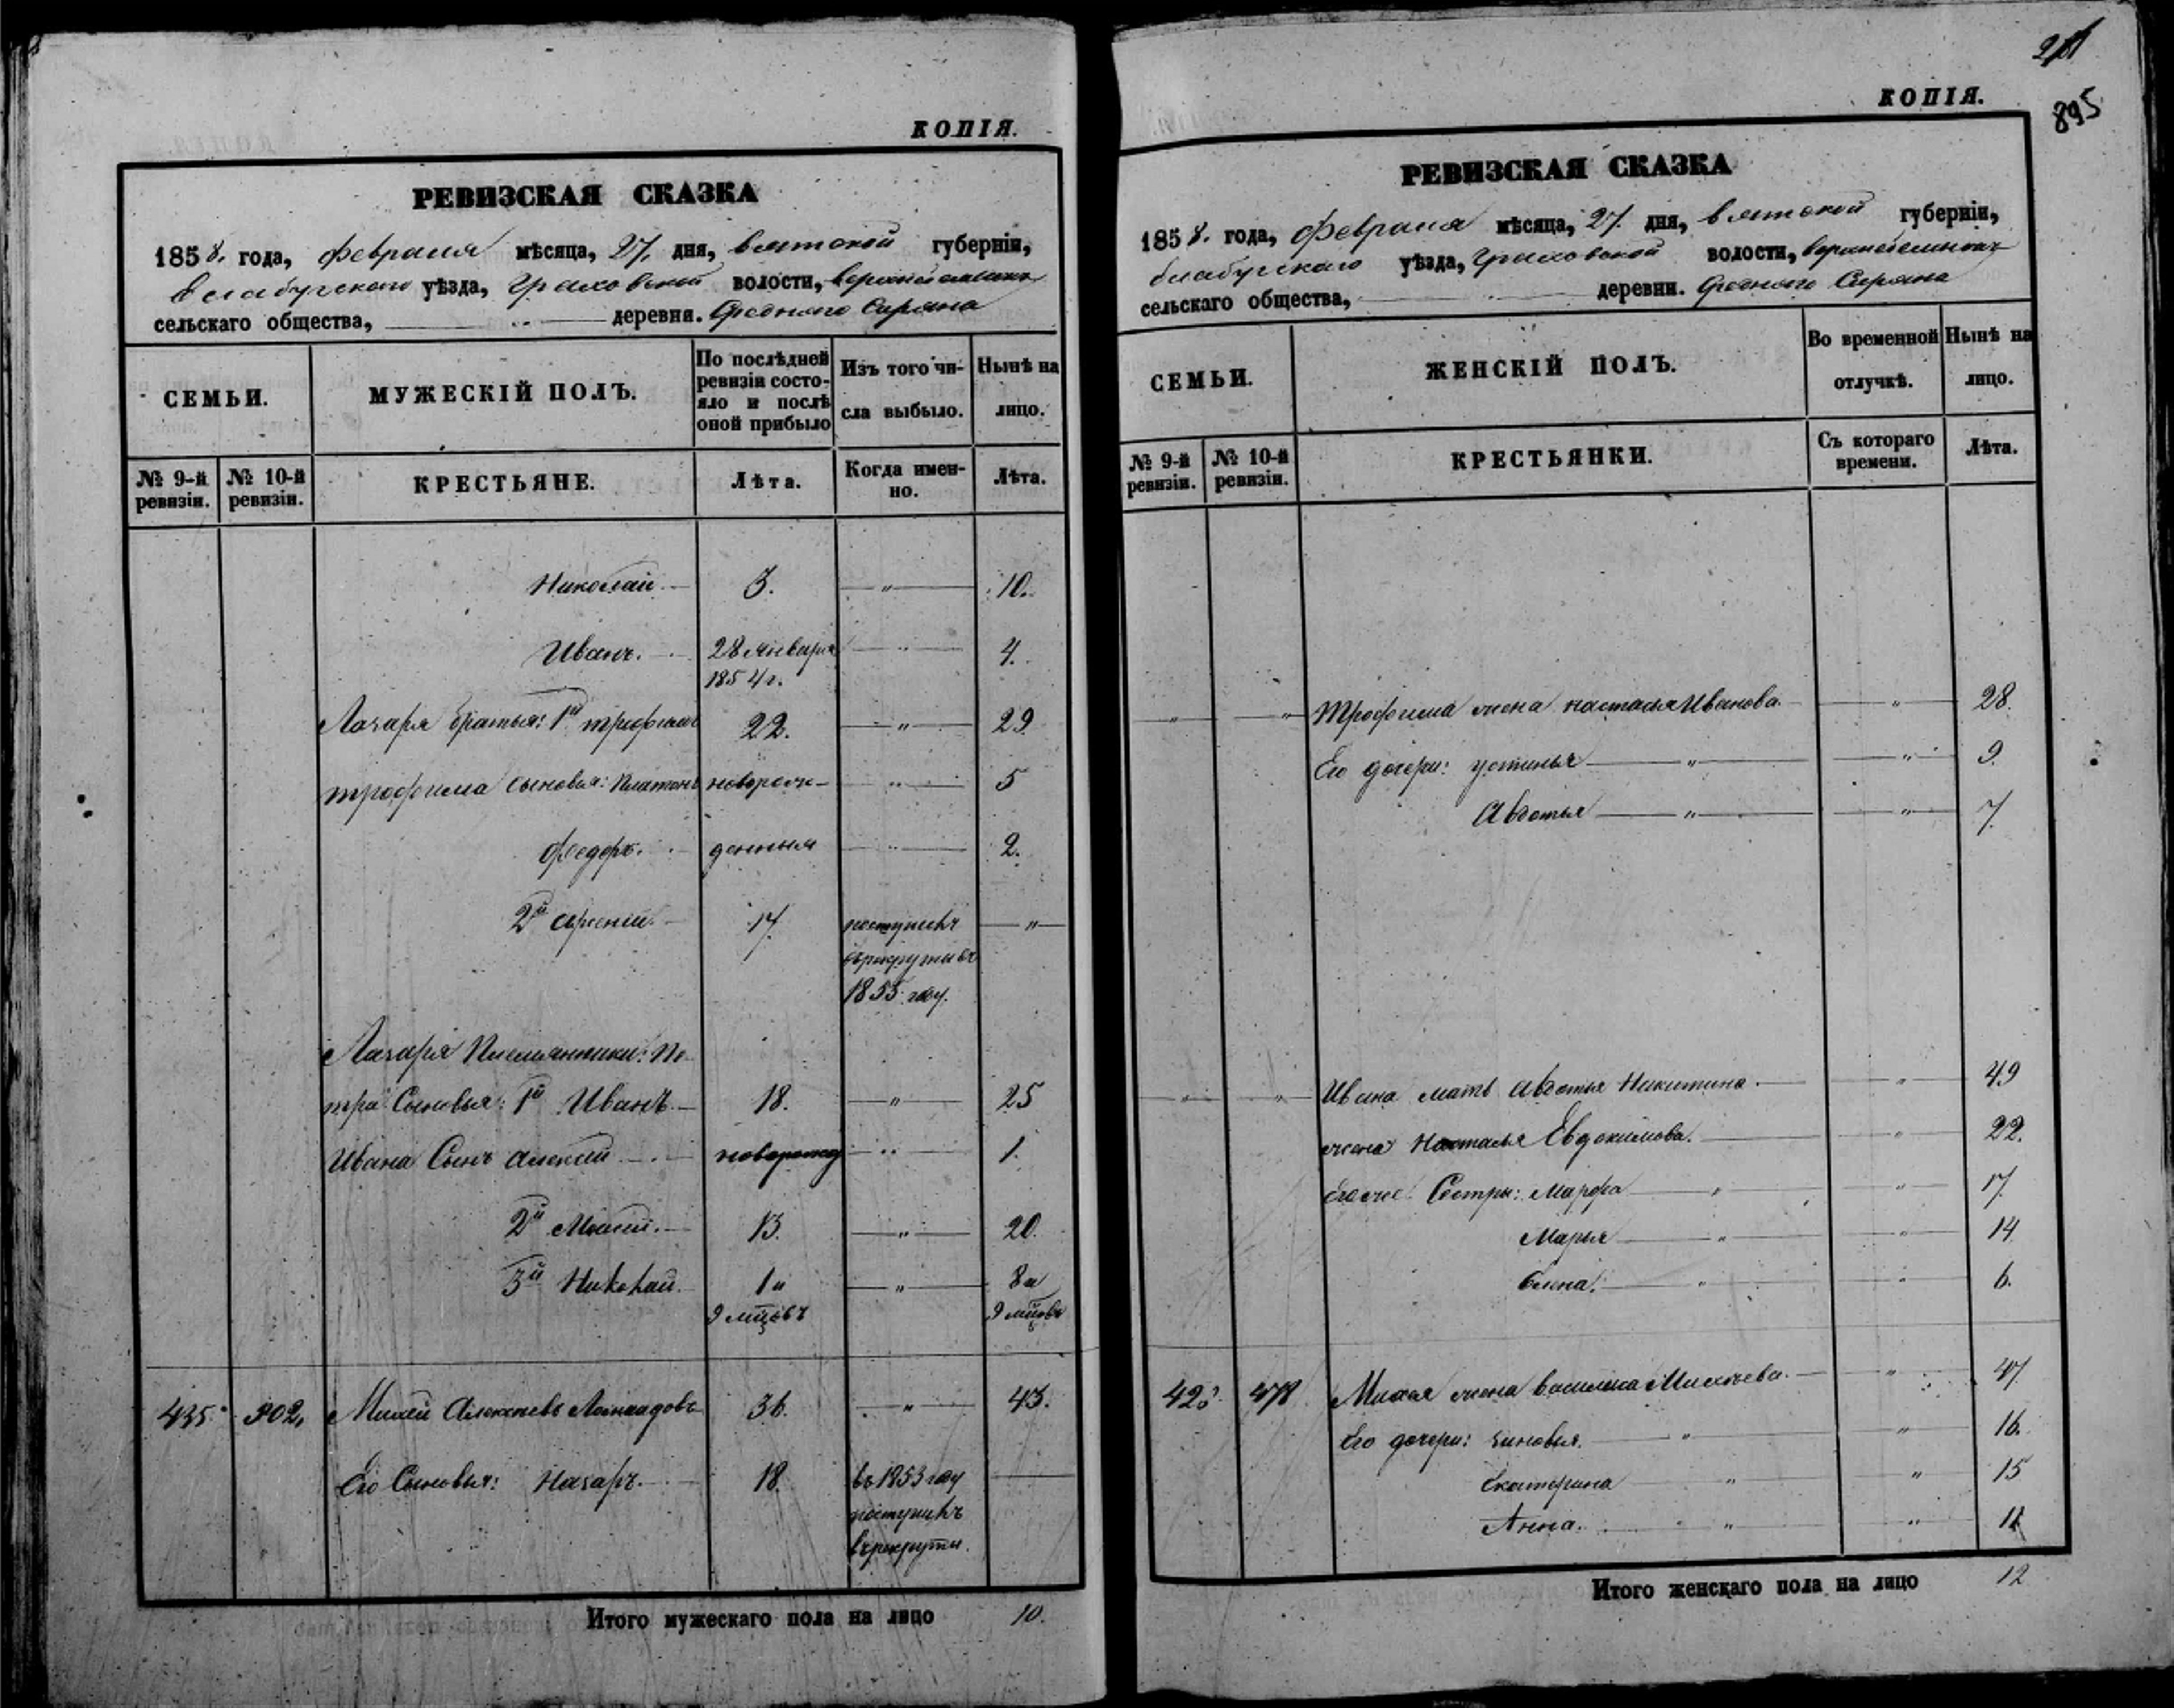 КОПІЯ.
РЕВИЗСКАЯ СКАЗКА
1858. года, февраля мѣсяца, 27. дня, вятской губерніи,
Елабугскаго уѣзда, Граховской волости,
сельскаго общества, деревни. Средняго Сиряна
СЕМЬИ. МУЖЕСКІЙ ПОЛЪ. По послѣдней ревизіи состояло и послѣ оной прибыло Изъ того числа выбыло. Нынѣ на лицо.
№ 9-й ревизіи. № 10-й ревизіи. КРЕСТЬЯНЕ. Лѣта. Когда именно. Лѣта.
Николай. 3. " 10.
Иванъ. 28 января " 4.
1854 г.
Лазаря братья: 1й трофимъ 22. " 29
трофима Сыновья: Платонъ новорож- " 5
федоръ. денныя " 2.
2й 17. поступилъ "
въ рекруты въ
1855 году.
Лазаря Племянники: Пе-
тра Сыновья: 1й Иванъ. 18. " 25
Ивана Сынъ алексѣй новорожд " 1.
2й 13. " 20.
3й Николай. 1 и " 8 и
9 мцовъ 9 мцовъ
435. 302, Михей Алексѣевъ 36. " 43.
Его Сыновья: Назаръ. 18. въ 1853 году
поступилъ
въ рекруты.
Итого мужескаго пола на лицо 10.
КОПІЯ.
895
РЕВИЗСКАЯ СКАЗКА
1858. года, Февраля мѣсяца, 27. дня, вятской губерніи,
Елабугскаго уѣзда, Граховской волости,
сельскаго общества, деревни. Средняго Сиряна
СЕМЬИ. ЖЕНСКІЙ ПОЛЪ. Во временной отлучкѣ. Нынѣ на лицо.
№ 9-й ревизіи. № 10-й ревизіи. КРЕСТЬЯНКИ. Съ котораго времени. Лѣта.
" " Трофима жена настасья Иванова. " 28.
Его дочери: устинья " " 9.
Авдотья " " 7.
" " Ивана мать авдотья Никитина. " 49
жена Настасья Евдокимова. " 22.
Его же Сестры: Марфа " " 17.
Марья " " 14
Елена. " " 6.
Михея жена василиса " 47
Его дочери: Зиновья. " " 16.
Екатерина " " 15
Анна. " "
Итого женскаго пола на лицо 12